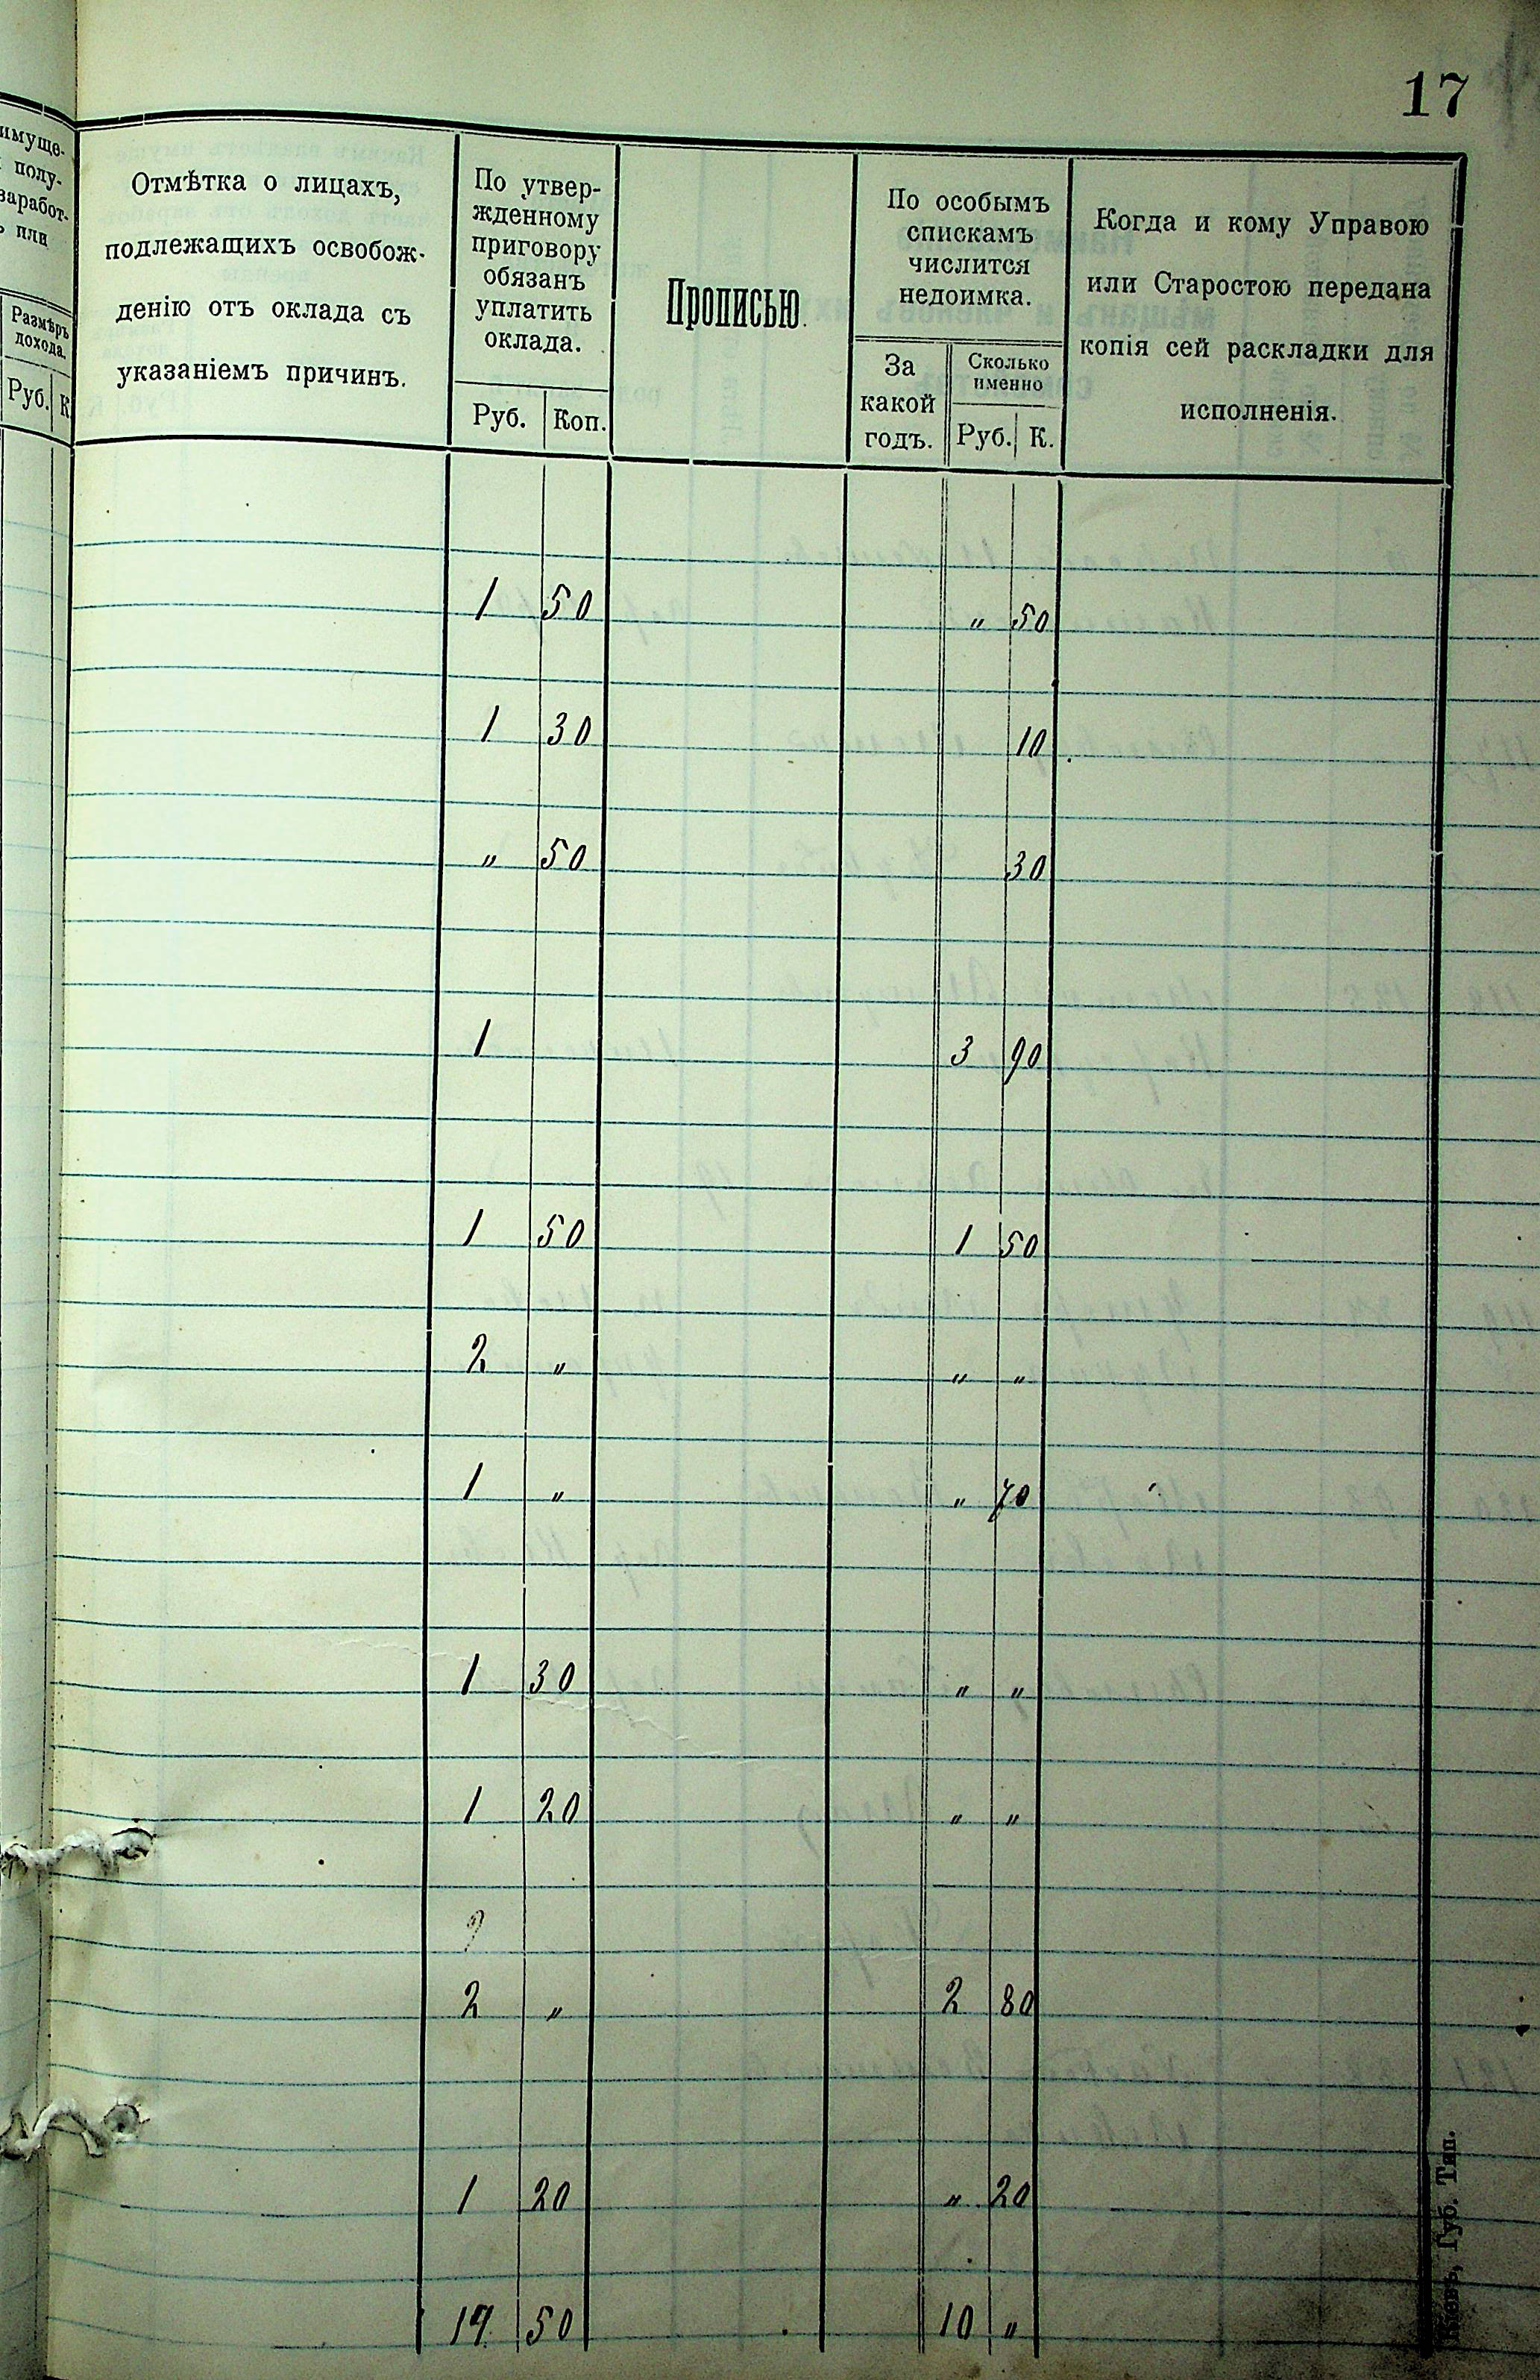 17
имуще-
полу-
заработ-
или
Размѣръ
дохода.
Руб. К
Отмѣтка о лицахъ,
подлежащихъ освобож-
денію отъ оклада съ
указаніемъ причинъ.
По утвер-
жденному
приговору
обязанъ
уплатить
оклада.
Руб. Коп.
Прописью.
По особымъ
спискамъ
числится
недоимка.
За
какой
годъ.
Сколько
именно
Руб. К.
Когда и кому Управою
или Старостою передана
копія сей раскладки для
исполненія.
1 50 „ 50
1 30 10
„ 50 30
1 3 90
1 50 1 50
2 „ „ „
1 „ „ 70
1 30 „ „
1 20 „ „
2 „ 2 80
1 20 „ 20
50 10 „
Губ. Тип.